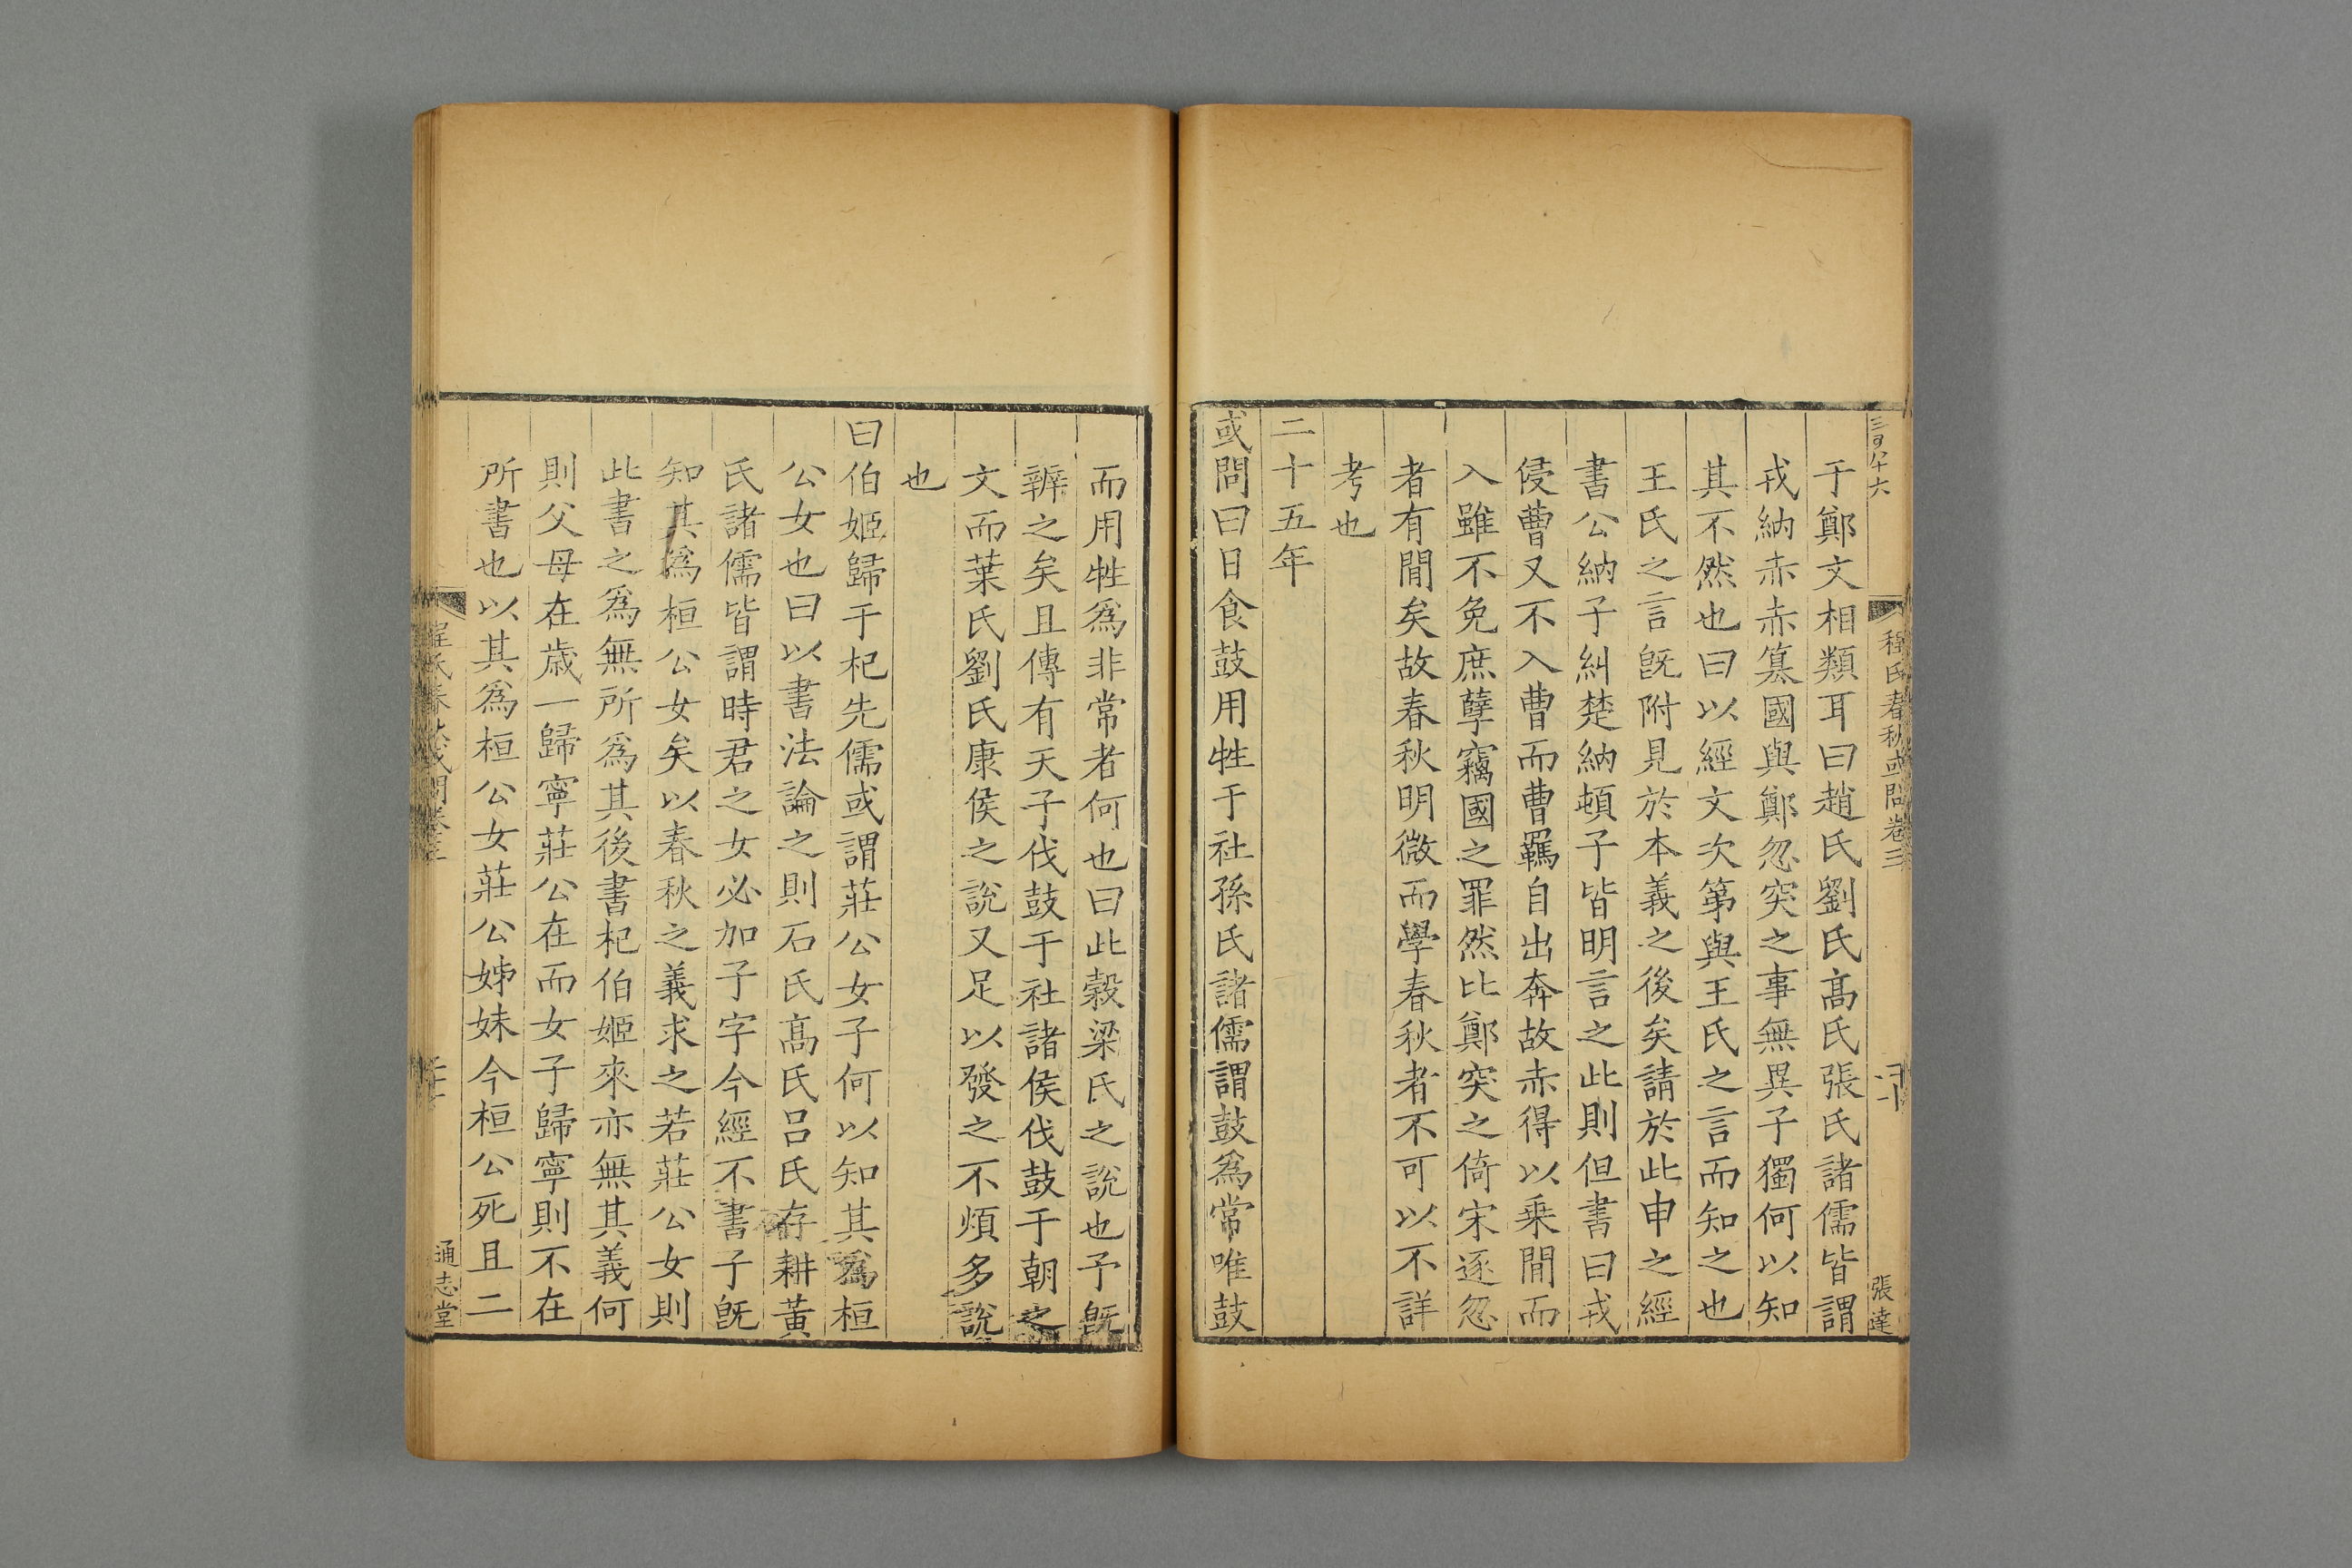 三百八十六
程氏春秋或問卷三
張達
于鄭文相類耳曰趙氏劉氏髙氏張氏諸儒皆謂
戎納赤赤篡國與鄭忽突之事無異子獨何以知
其不然也曰以經文次第與王氏之言而知之也
王氏之言旣附見於本義之後矣請於此申之經
書公納子糾楚納頓子皆明言之此則但書曰戎
侵曹又不入曹而曹羈自出奔故赤得以乗間而
入雖不免庶孽竊國之罪然比鄭突之倚宋逐忽
者有間矣故春秋明微而學春秋者不可以不詳
考也
二十五年
或問曰日食鼓用牲于社孫氏諸儒謂鼓爲常唯鼓
而用牲爲非常者何也曰此穀梁氏之說也予旣
辨之矣且傳有天子伐鼓于社諸侯伐鼓于朝之
文而葉氏劉氏康侯之說又足以發之不煩多說
也
曰伯姬歸于杞先儒或謂莊公女子何以知其爲桓
公女也曰以書法論之則石氏髙氏吕氏存耕黃
氏諸儒皆謂時君之女必加子字今經不書子旣
知其爲桓公女矣以春秋之義求之若莊公女則
此書之爲無所爲其後書杞伯姬來亦無其義何
則父母在歳一歸寧莊公在而女子歸寧則不在
所書也以其爲桓公女莊公姊妹今桓公死且二
程氏春秋或問卷三
通志堂